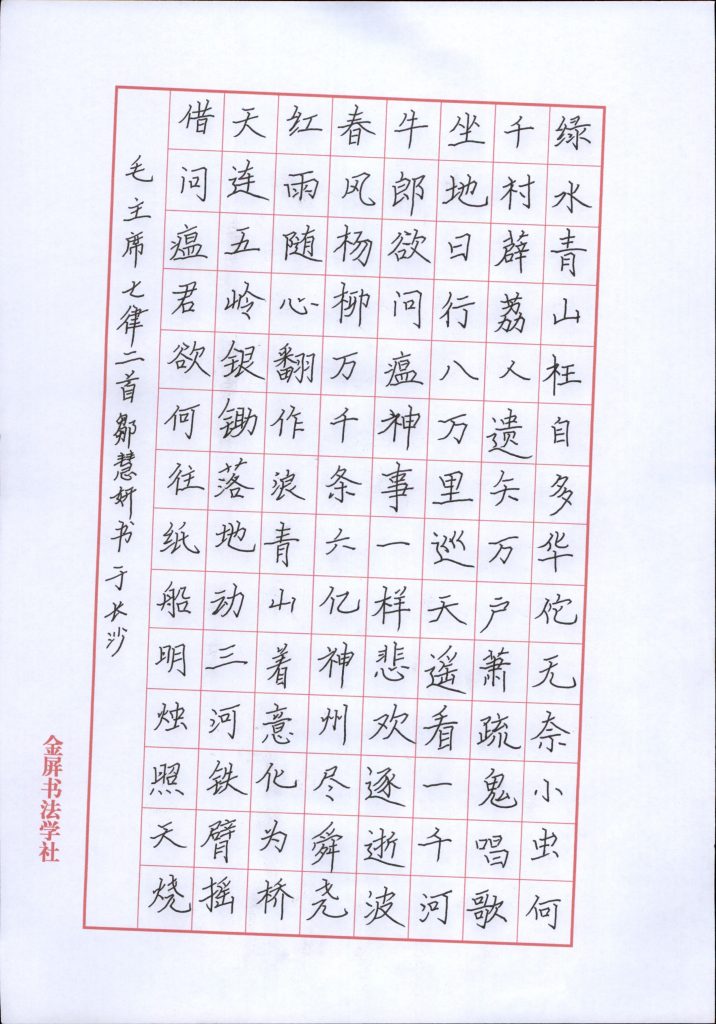 绿水青山枉自多华佗无奈小虫何
千村薜荔人遗矢万户萧疏鬼唱歌
坐地日行八万里巡天遥看一千河
牛郎欲问瘟神事一样悲欢逐逝波
春风杨柳万千条六亿神州尽舜尧
红雨随心翻作浪青山着意化为桥
天连五岭银锄落地动三河铁臂摇
借问瘟君欲何往纸船明烛照天烧
毛主席七律二首邹慧妍书于长沙
金屏书法学社